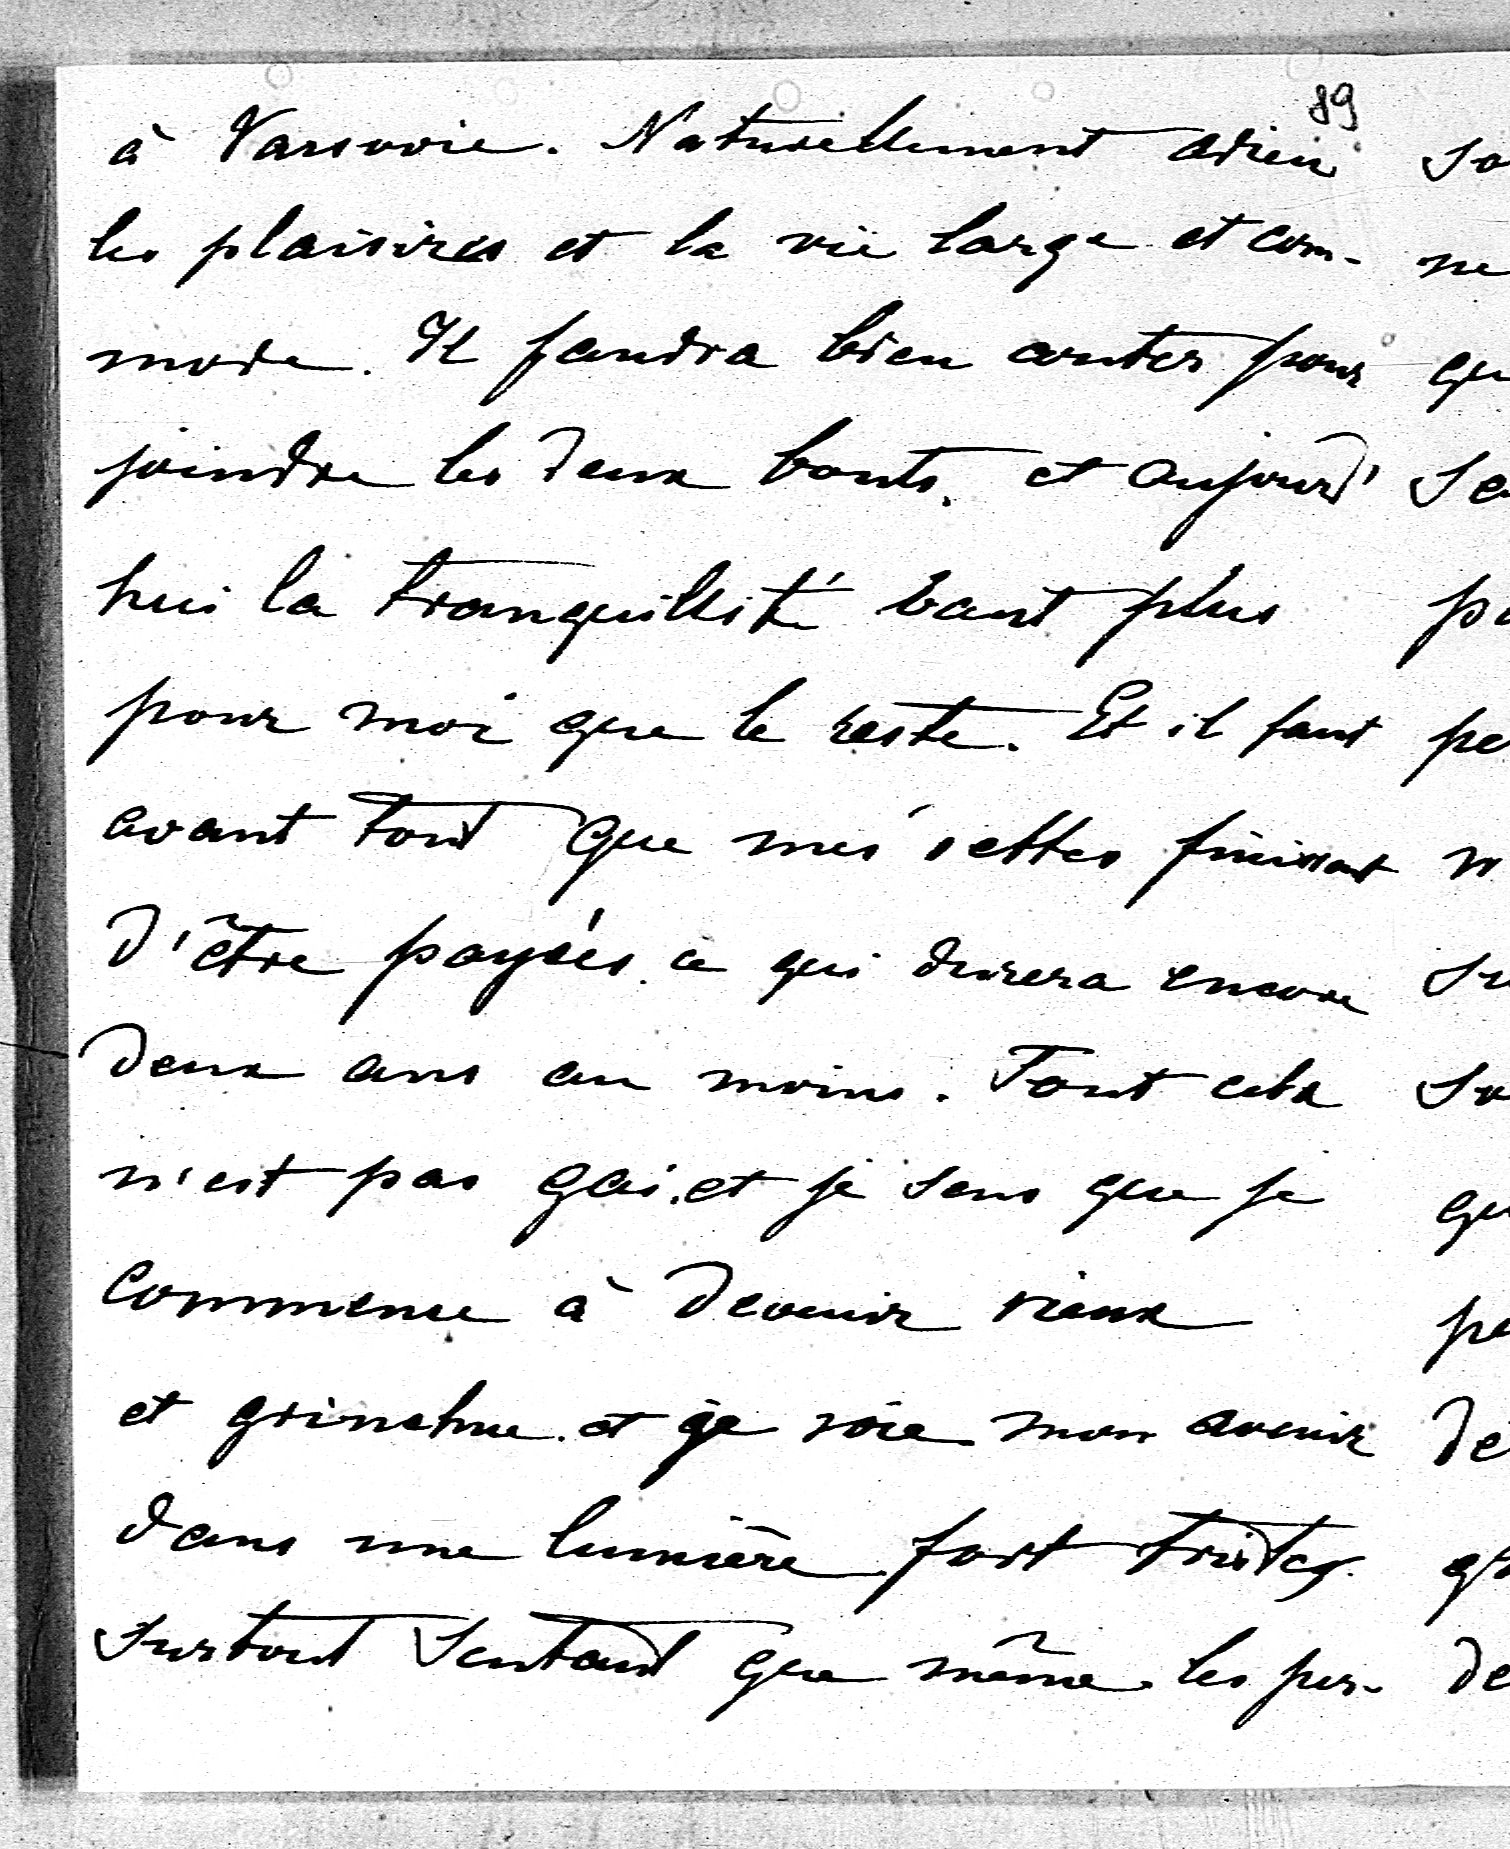 89
à Varsovie. Naturellement adieu
les plaisires et la vie large et com-
mode. Il faudra bien conter pour
joindre les deux bouts, et aujourd'
hui la tranquillité vaut plus
pour moi que le reste. Et il faut
avant tout que mes dettes finissent
d'être payées, ce qui durera encore
deux ans au moins. Tout cela
n'est pas gai, et je sens que je
commence à devenir vieux
et grinchue et je vois mon avenir
dans une lumière fort triste,
surtout sentant que même les per-